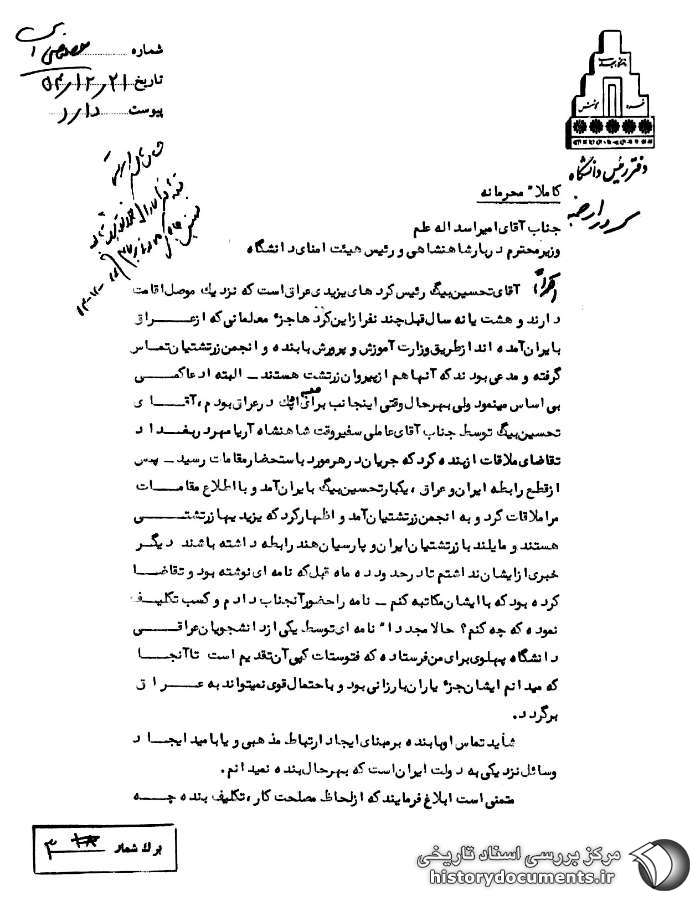 شماره
خصوصی است
تاریخ ۵۴٫۱۲٫۲۱
پیوست دارد
دفتر رئیس دانشگاه
کاملا" محرمانه
جناب آقای امیر اسداله علم
وزیر محترم دربار شاهنشاهی و رئیس هیئت امنای دانشگاه
آقای تحسین بیگ رئیس کردهای یزیدی عراق است که نزدیک موصل اقامت
دارند و هشت یا نه سال قبل چند نفر از این کردها جزء معلمانی که از عراق
بایران آمده اند از طریق وزارت آموزش و پرورش بابنده و انجمن زرتشتیان تماس
گرفته و مدعی بودند که آنها هم از پیروان زرتشت هستند ـ البته ادعا کمی
بی اساس مینمود ولی بهرحال وقتی اینجانب برای اپک در عراق بودم ، آقای
تحسین بیگ توسط جناب آقای عاملی سفیر وقت شاهنشاه آریامهر در بغداد
تقاضای ملاقات از بنده کرد که جریان در هر مورد باستحضار مقامات رسید ـ پس
از قطع رابطه ایران و عراق ، یکبار تحسین بیگ بایران آمد و با اطلاع مقامات
مرا ملاقات کرد و به انجمن زرتشتیان آمد و اظهار کرد که یزیدیها زرتشتی
هستند و مایلند با زرتشتیان ایران و پارسیان هند رابطه داشته باشند دیگر
خبری از ایشان نداشتم تا در حدود ده ماه قبل که نامه ای نوشته بود و تقاضا
کرده بود که با ایشان مکاتبه کنم ـ نامه را حضور آنجناب دادم و کسب تکلیف
نموده که چه کنم ؟ حالا مجددا" نامه ای توسط یکی از دانشجویان عراقی
دانشگاه پهلوی برای من فرستاده که فتوستات کپی آن تقدیم است تا آنجا
که میدانم ایشان جزء یاران بارزانی بود و باحتمال قوی نمیتواند به عراق
برگردد.
شاید تماس او بابنده بر مبنای ایجاد ارتباط مذهبی و یا بامید ایجاد
وسائل نزدیکی به دولت ایران است که بهرحال بنده نمیدانم .
متمنی است ابلاغ فرمایند که از لحاظ مصلحت کار ، تکلیف بنده چه
برگ شمار ۳
مرکز بررسی اسناد تاریخی
historydocuments.ir